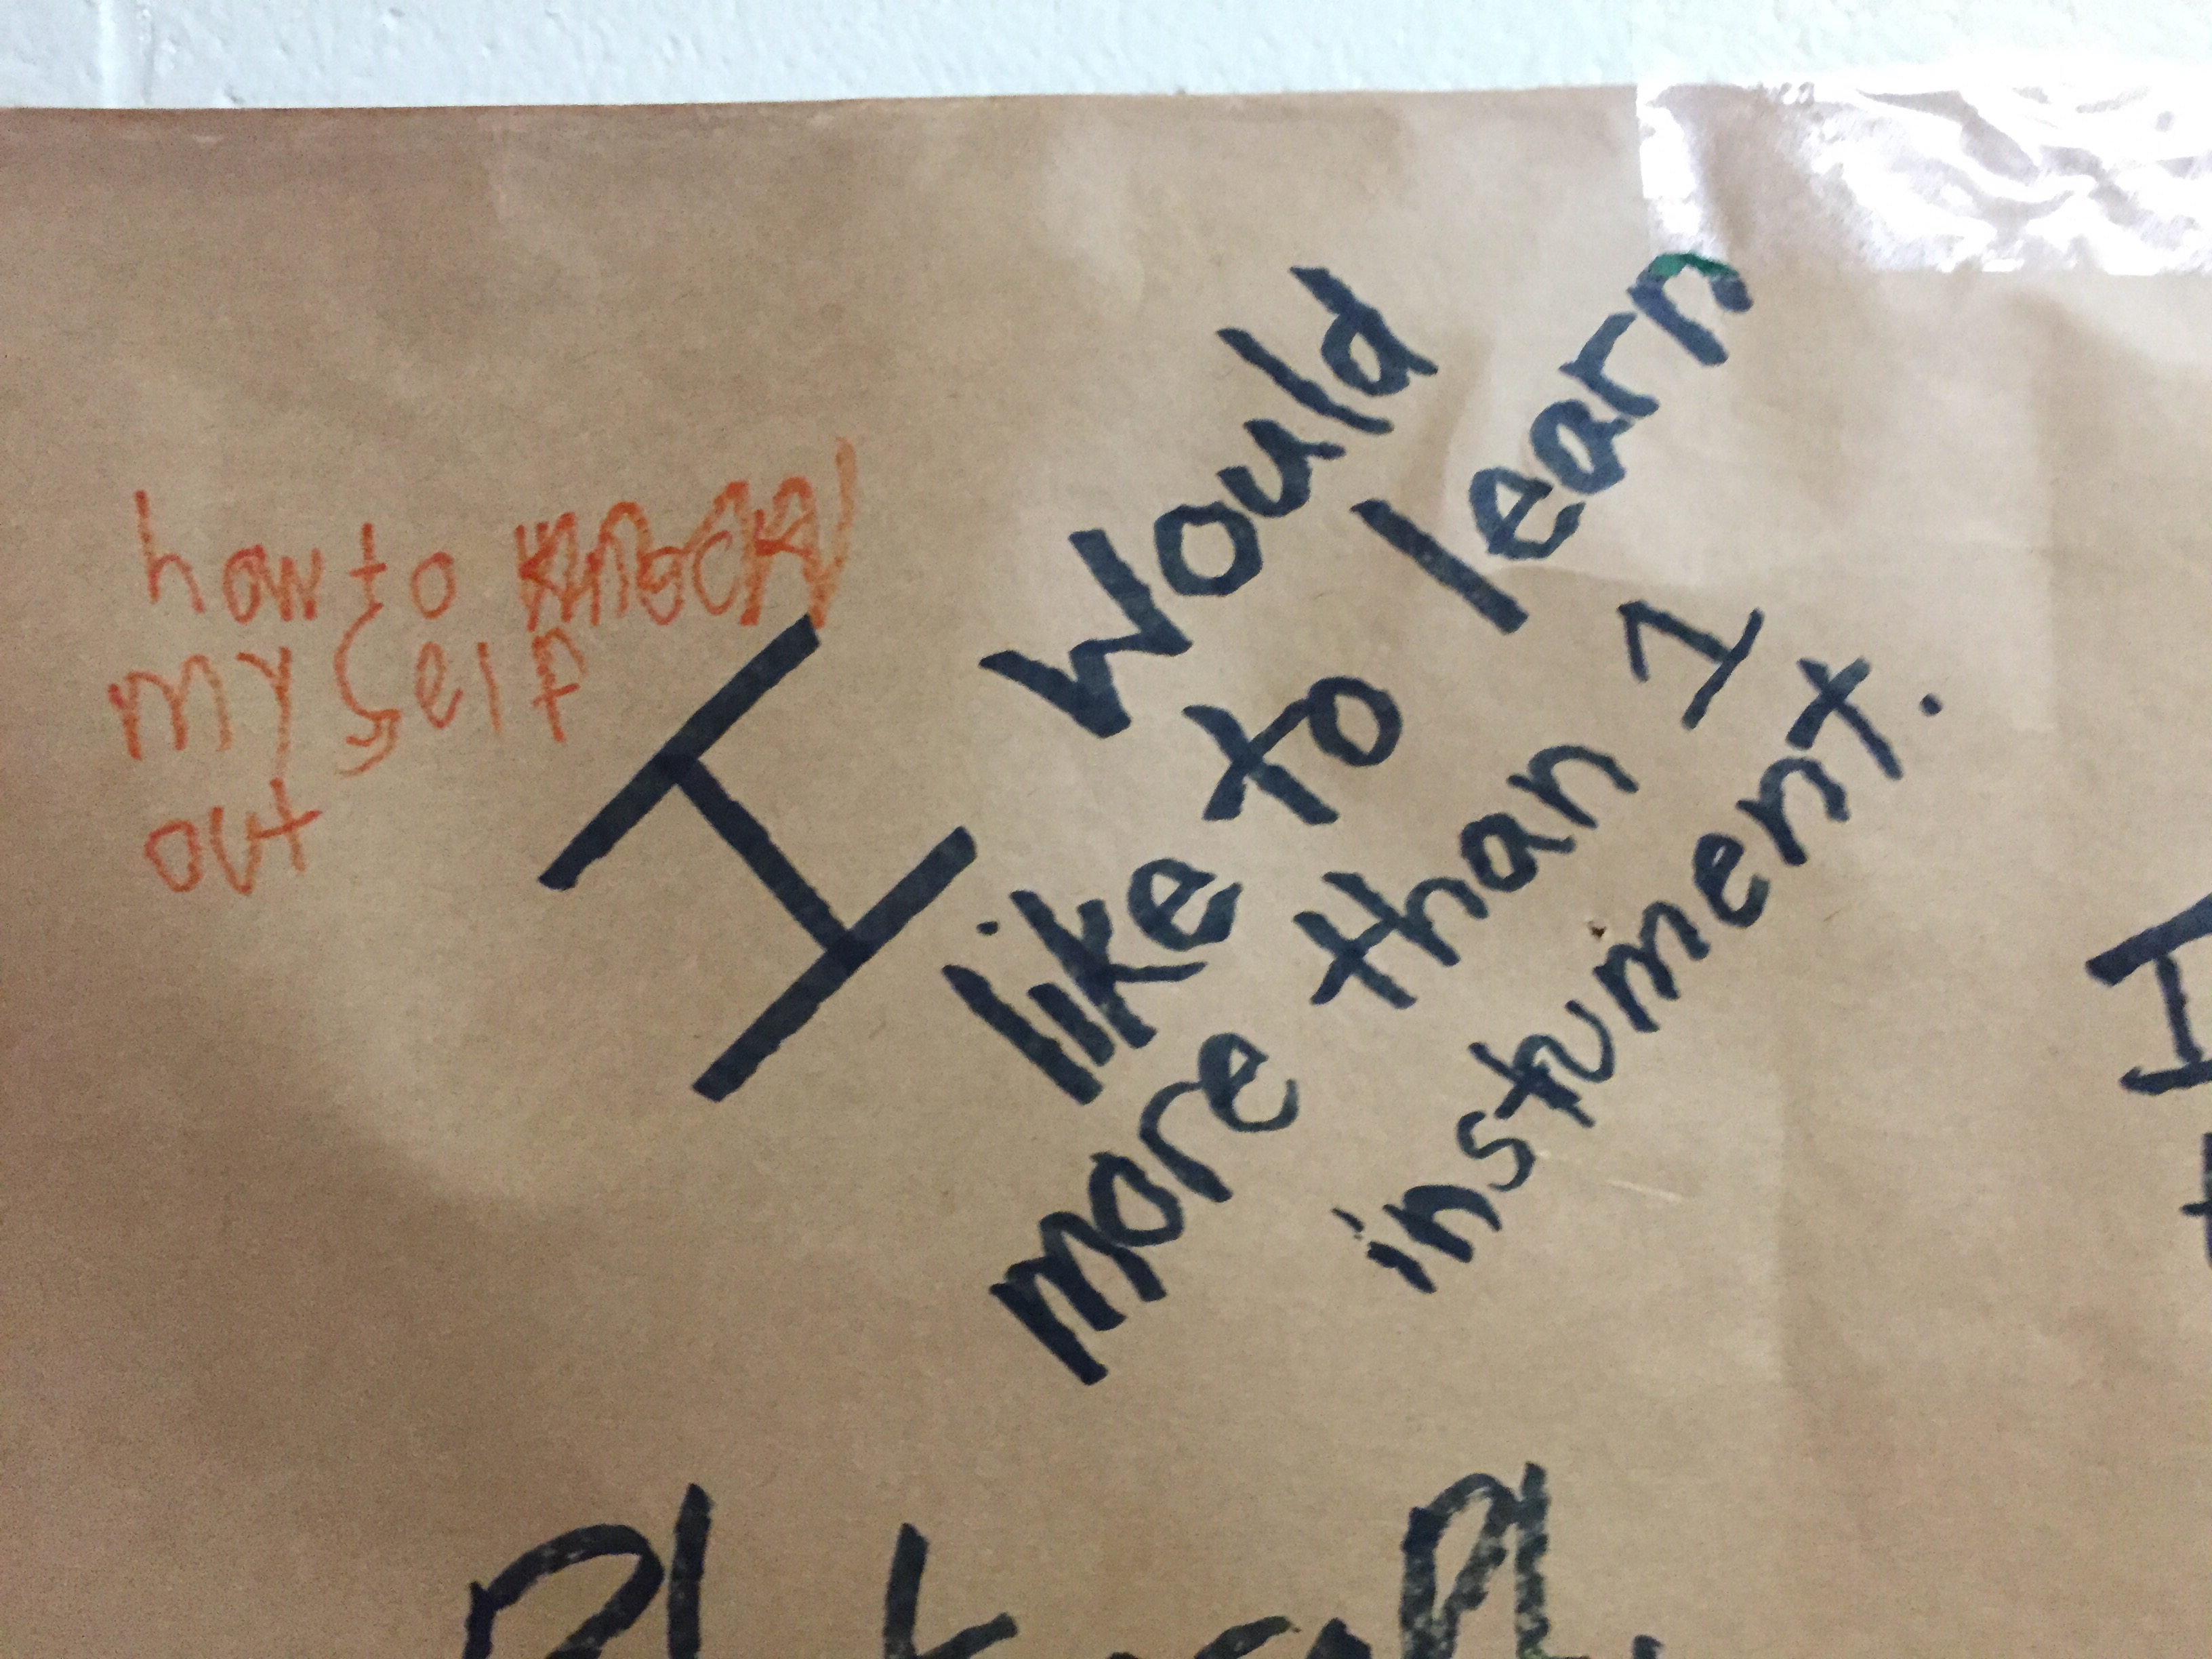 how to knock
myself
out
I would
like to learn
more than 1
instument.
I